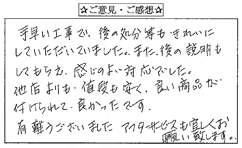 ☆ご意見・ご感想☆
手早い工事で、後の処分等もきれいに
していただいていました。また、後の説明も
してもらえ、感じのよい対応でした。
他店よりも、値段も安く、良い商品が
付けられて、良かったです。
有難うございました アフターサービスも宜しくお
願い致します。